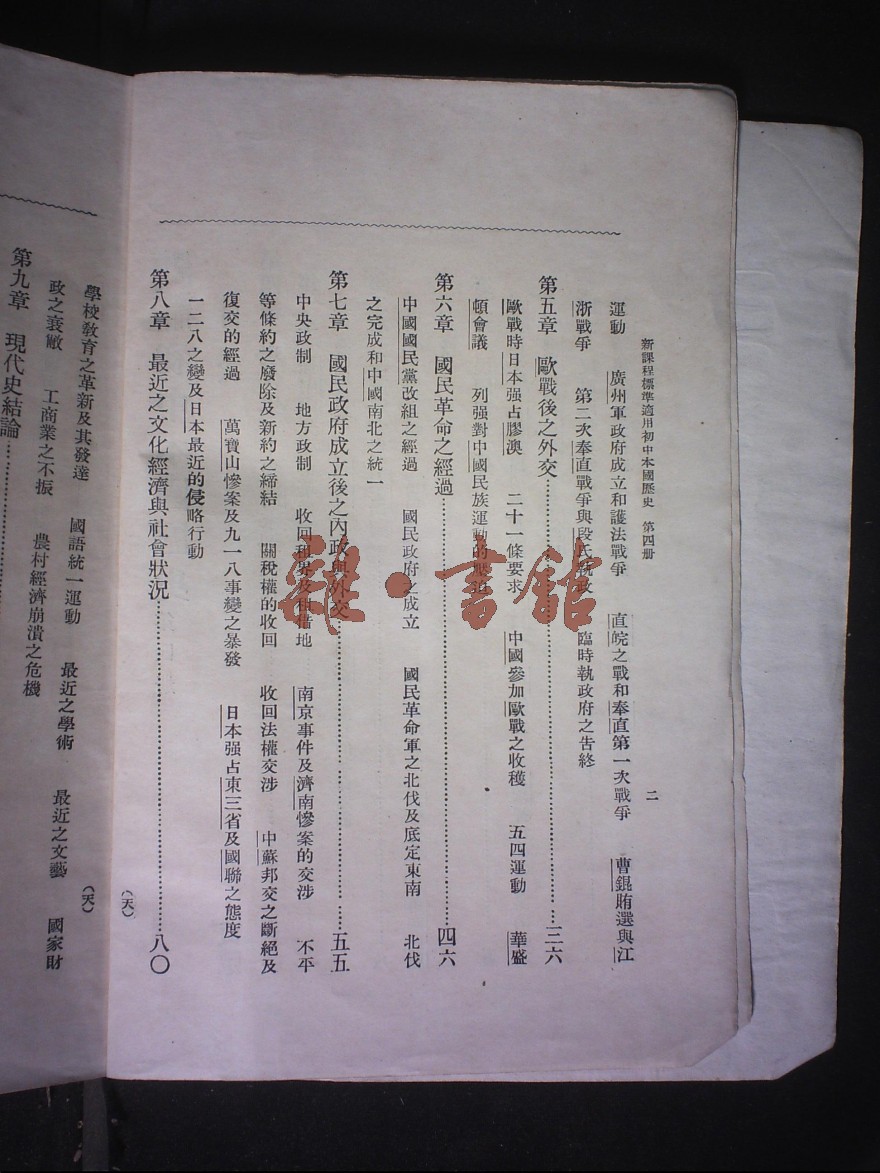 新課程標準適用初中本國歷史 第四册 二
運動 廣州軍政府成立和護法戰爭 直皖之戰和奉直第一次戰爭 曹錕賄選與江
浙戰爭 第二次奉直戰爭與段氏執政 臨時執政府之告終
第五章 歐戰後之外交……三六
歐戰時日本强占膠澳 二十一條要求 中國參加歐戰之收穫 五四運動 華盛
頓會議 列强對中國民族運動的壓迫
第六章 國民革命之經過……四六
中國國民黨改組之經過 國民政府之成立 國民革命軍之北伐及底定東南 北伐
之完成和中國南北之統一
第七章 國民政府成立後之內政與外交……五五
中央政制 地方政制 收回租界及租借地 南京事件及濟南慘案的交涉 不平
等條約之廢除及新約之締結 關稅權的收回 收回法權交涉 中蘇邦交之斷絕及
復交的經過 萬寶山慘案及九一八事變之暴發 日本强占東三省及國聯之態度
一二八之變及日本最近的侵略行動
第八章 最近之文化經濟與社會狀況……八〇
(天)
學校教育之革新及其發達 國語統一運動 最近之學術 最近之文藝 國家財
政之衰敝 工商業之不振 農村經濟崩潰之危機
第九章 現代史結論……
(天)
雜·書館